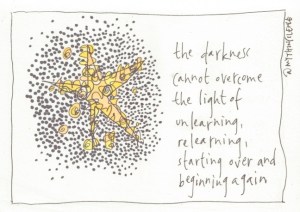 the darkness
cannot overcome
the light of
unlearning,
relearning,
starting over and
beginning again